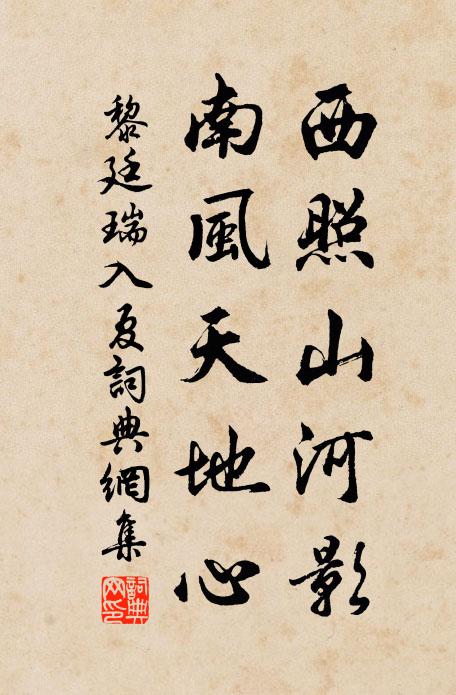 西照山河影
南風天地心
黎廷瑞入夏詞典網集
詞典
网印